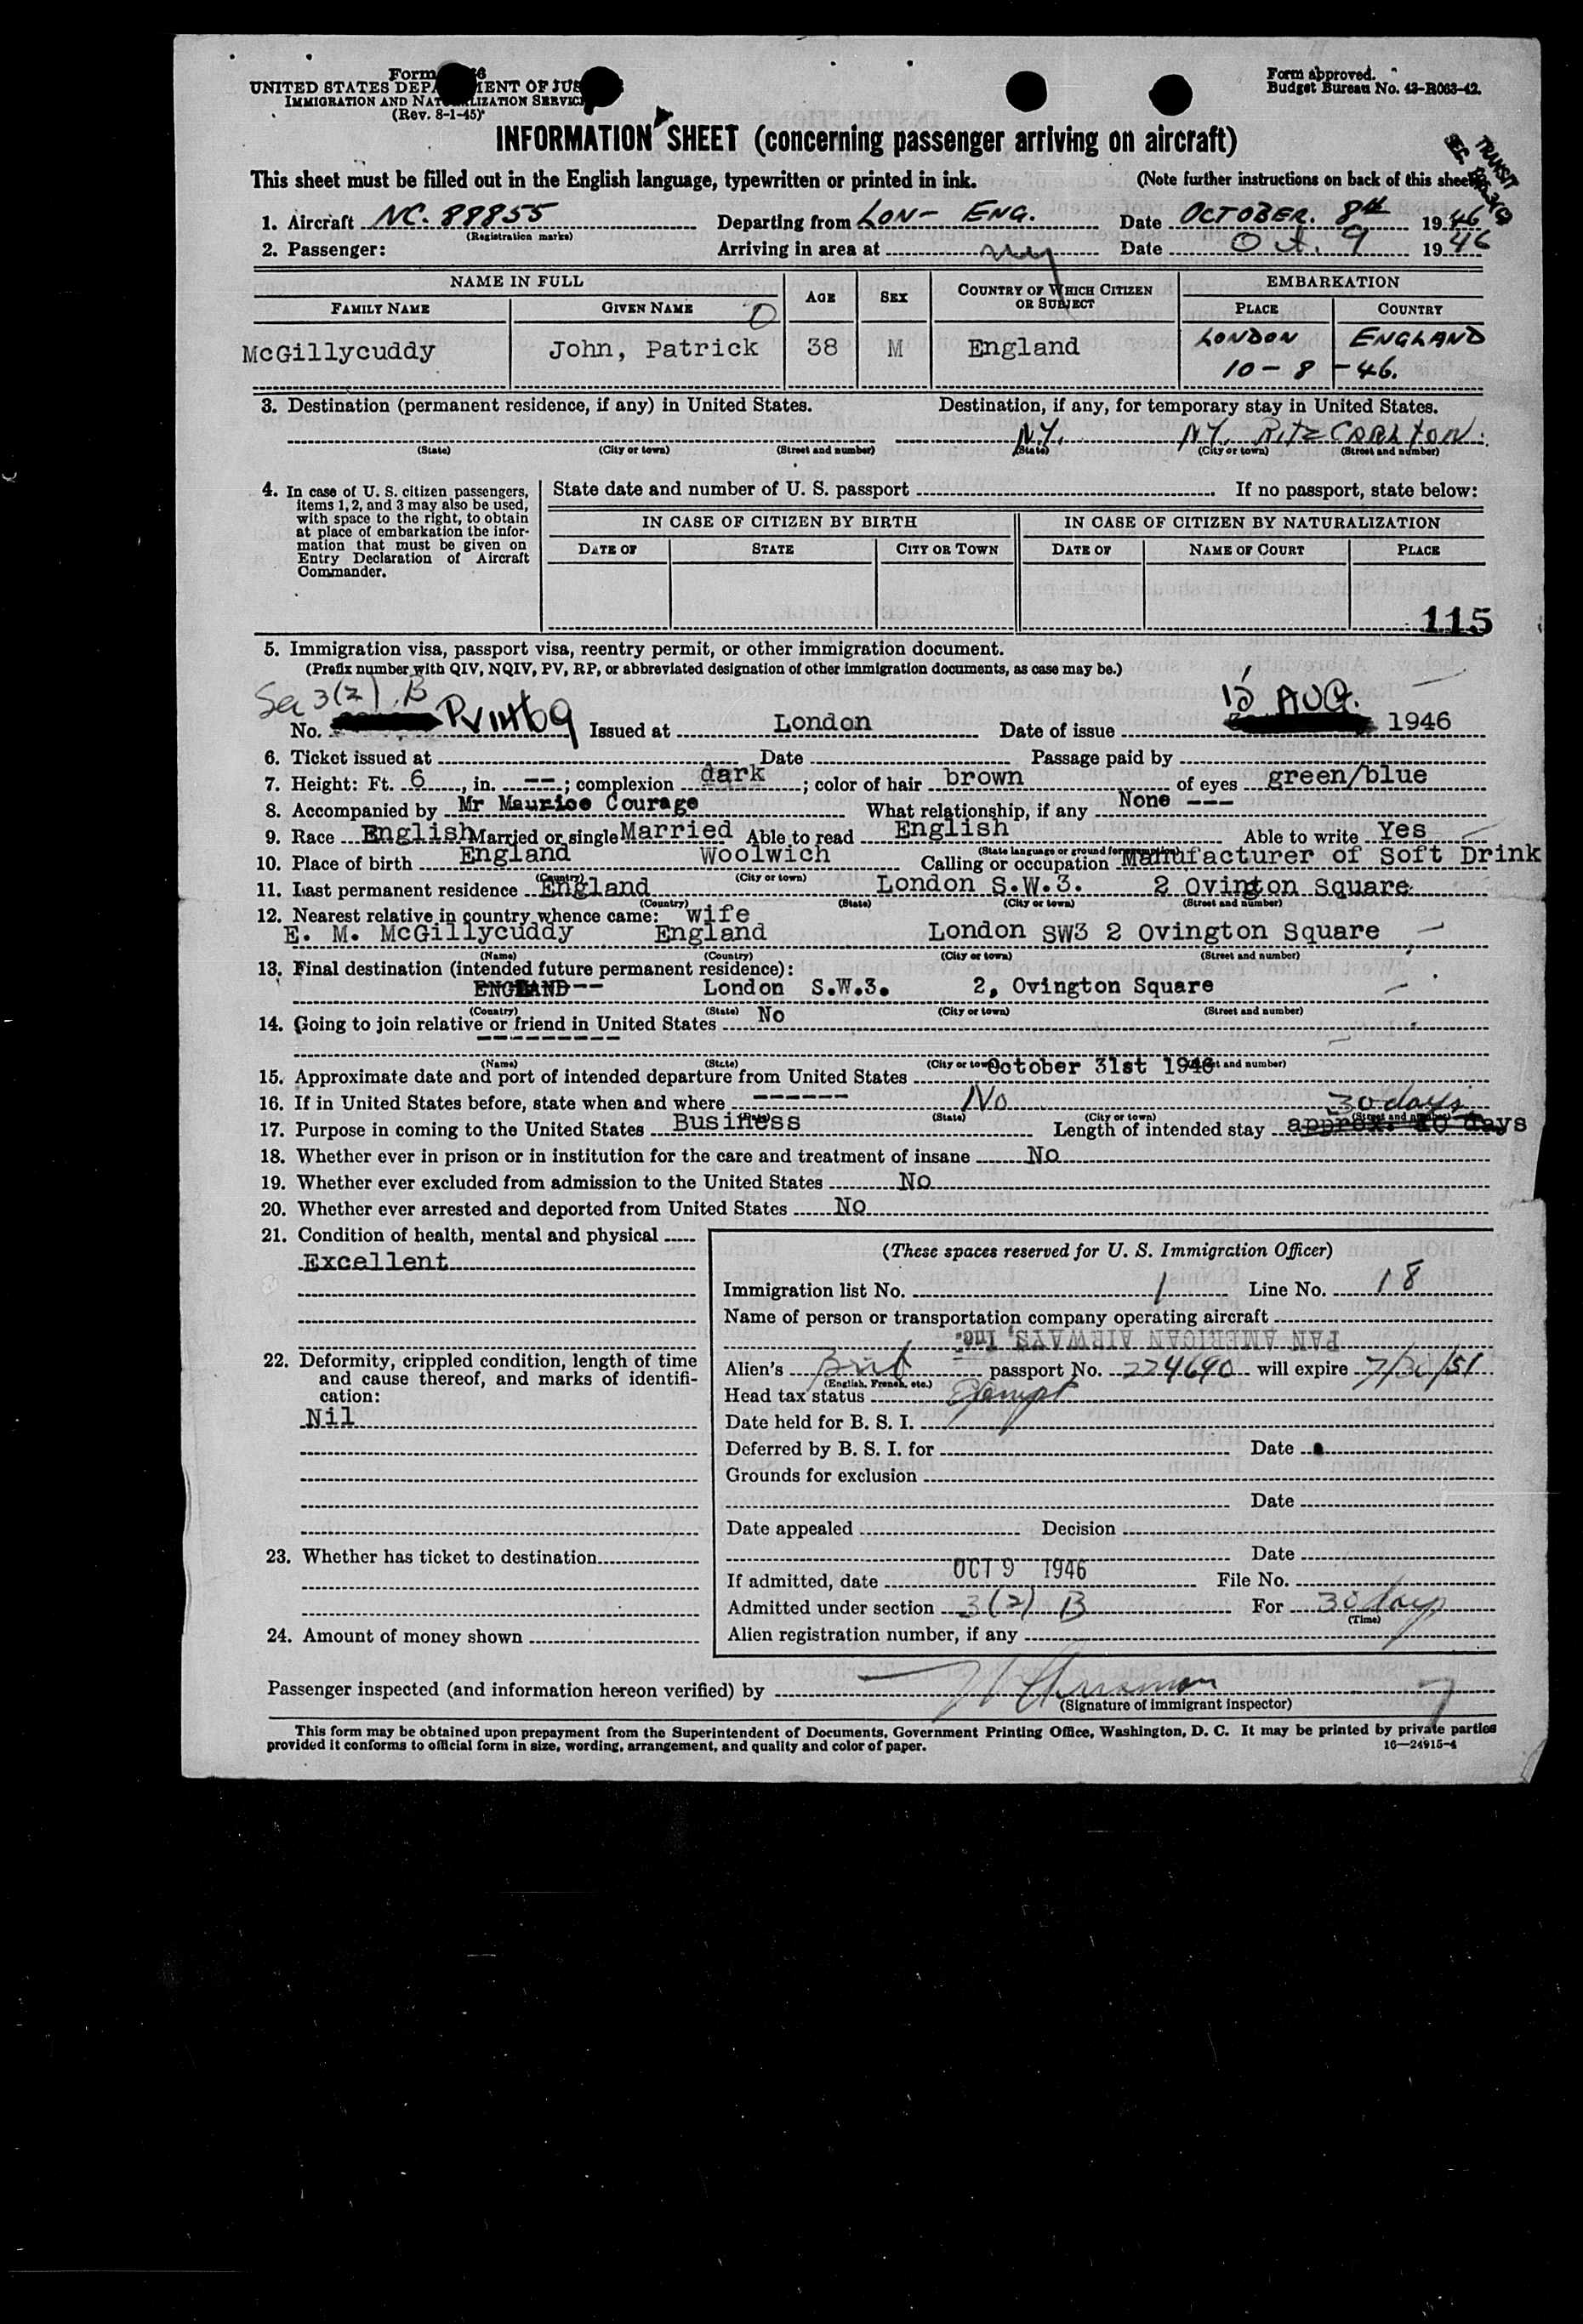 Form
UNITED STATES DEPARTMENT OF JUSTICE
IMMIGRATION AND NATURALIZATION SERVICE
(Rev. 8-1-45)
Form approved.
Budget Bureau No. 43-R063-42.
INFORMATION SHEET (concerning passenger arriving on aircraft)
TRANSIT
SEC.
This sheet must be filled out in the English language, typewritten or printed in ink. (Note further instructions on back of this sheet)
1. Aircraft NC. 88855 Departing from LON- ENG. Date OCTOBER. 8th 1946
(Registration marks)
2. Passenger: Arriving in area at Date Oct. 9 1946
NAME IN FULL AGE SEX COUNTRY OF WHICH CITIZEN OR SUBJECT EMBARKATION
FAMILY NAME GIVEN NAME PLACE COUNTRY
McGillycuddy John, Patrick 38 M England LONDON ENGLAND
10-8-46.
3. Destination (permanent residence, if any) in United States. Destination, if any, for temporary stay in United States.
N.Y. N.Y. RITZ CARLTON.
(State) (City or town) (Street and number) (State) (City or town) (Street and number)
4. In case of U. S. citizen passengers, items 1, 2, and 3 may also be used, with space to the right, to obtain at place of embarkation the information that must be given on Entry Declaration of Aircraft Commander.
State date and number of U. S. passport If no passport, state below:
IN CASE OF CITIZEN BY BIRTH IN CASE OF CITIZEN BY NATURALIZATION
DATE OF STATE CITY OR TOWN DATE OF NAME OF COURT PLACE
115
5. Immigration visa, passport visa, reentry permit, or other immigration document.
(Prefix number with QIV, NQIV, PV, RP, or abbreviated designation of other immigration documents, as case may be.)
Sec 3(2) B
15 AUG.
No. Issued at London Date of issue 1946
6. Ticket issued at Date Passage paid by
7. Height: Ft. 6, in. --; complexion dark; color of hair brown of eyes green/blue
8. Accompanied by Mr Maurice Courage What relationship, if any None ---
9. Race English Married or single Married Able to read English Able to write Yes
(State language or ground for exemption)
10. Place of birth England Woolwich Calling or occupation Manufacturer of Soft Drink
(Country) (City or town)
11. Last permanent residence England London S.W.3. 2 Ovington Square
(Country) (State) (City or town) (Street and number)
12. Nearest relative in country whence came: wife
E. M. McGillycuddy England London SW3 2 Ovington Square
(Name) (Country) (City or town) (Street and number)
13. Final destination (intended future permanent residence):
ENGLAND-- London S.W.3. 2, Ovington Square
(Country) (State) (City or town) (Street and number)
14. Going to join relative or friend in United States No
---------
(Name) (State) (City or town) (Street and number)
15. Approximate date and port of intended departure from United States October 31st 1946
16. If in United States before, state when and where ------ No
(Date) (State) (City or town) (Street and number)
30 days
17. Purpose in coming to the United States Business Length of intended stay approx. 10 days
18. Whether ever in prison or in institution for the care and treatment of insane No
19. Whether ever excluded from admission to the United States No
20. Whether ever arrested and deported from United States No
21. Condition of health, mental and physical
Excellent
22. Deformity, crippled condition, length of time and cause thereof, and marks of identification:
Nil
23. Whether has ticket to destination
24. Amount of money shown
(These spaces reserved for U. S. Immigration Officer)
Immigration list No. 1 Line No. 18
Name of person or transportation company operating aircraft
PAN AMERICAN AIRWAYS, Inc.
Alien's Brit passport No. 224640 will expire 7/30/51
(English, French, etc.)
Head tax status Exempt
Date held for B. S. I.
Deferred by B. S. I. for Date
Grounds for exclusion
Date
Date appealed Decision
Date
If admitted, date OCT 9 1946 File No.
Admitted under section 3(2) B For 30 days
(Time)
Alien registration number, if any
Passenger inspected (and information hereon verified) by
(Signature of immigrant inspector)
This form may be obtained upon prepayment from the Superintendent of Documents, Government Printing Office, Washington, D. C. It may be printed by private parties
provided it conforms to official form in size, wording, arrangement, and quality and color of paper. 16—24915-4